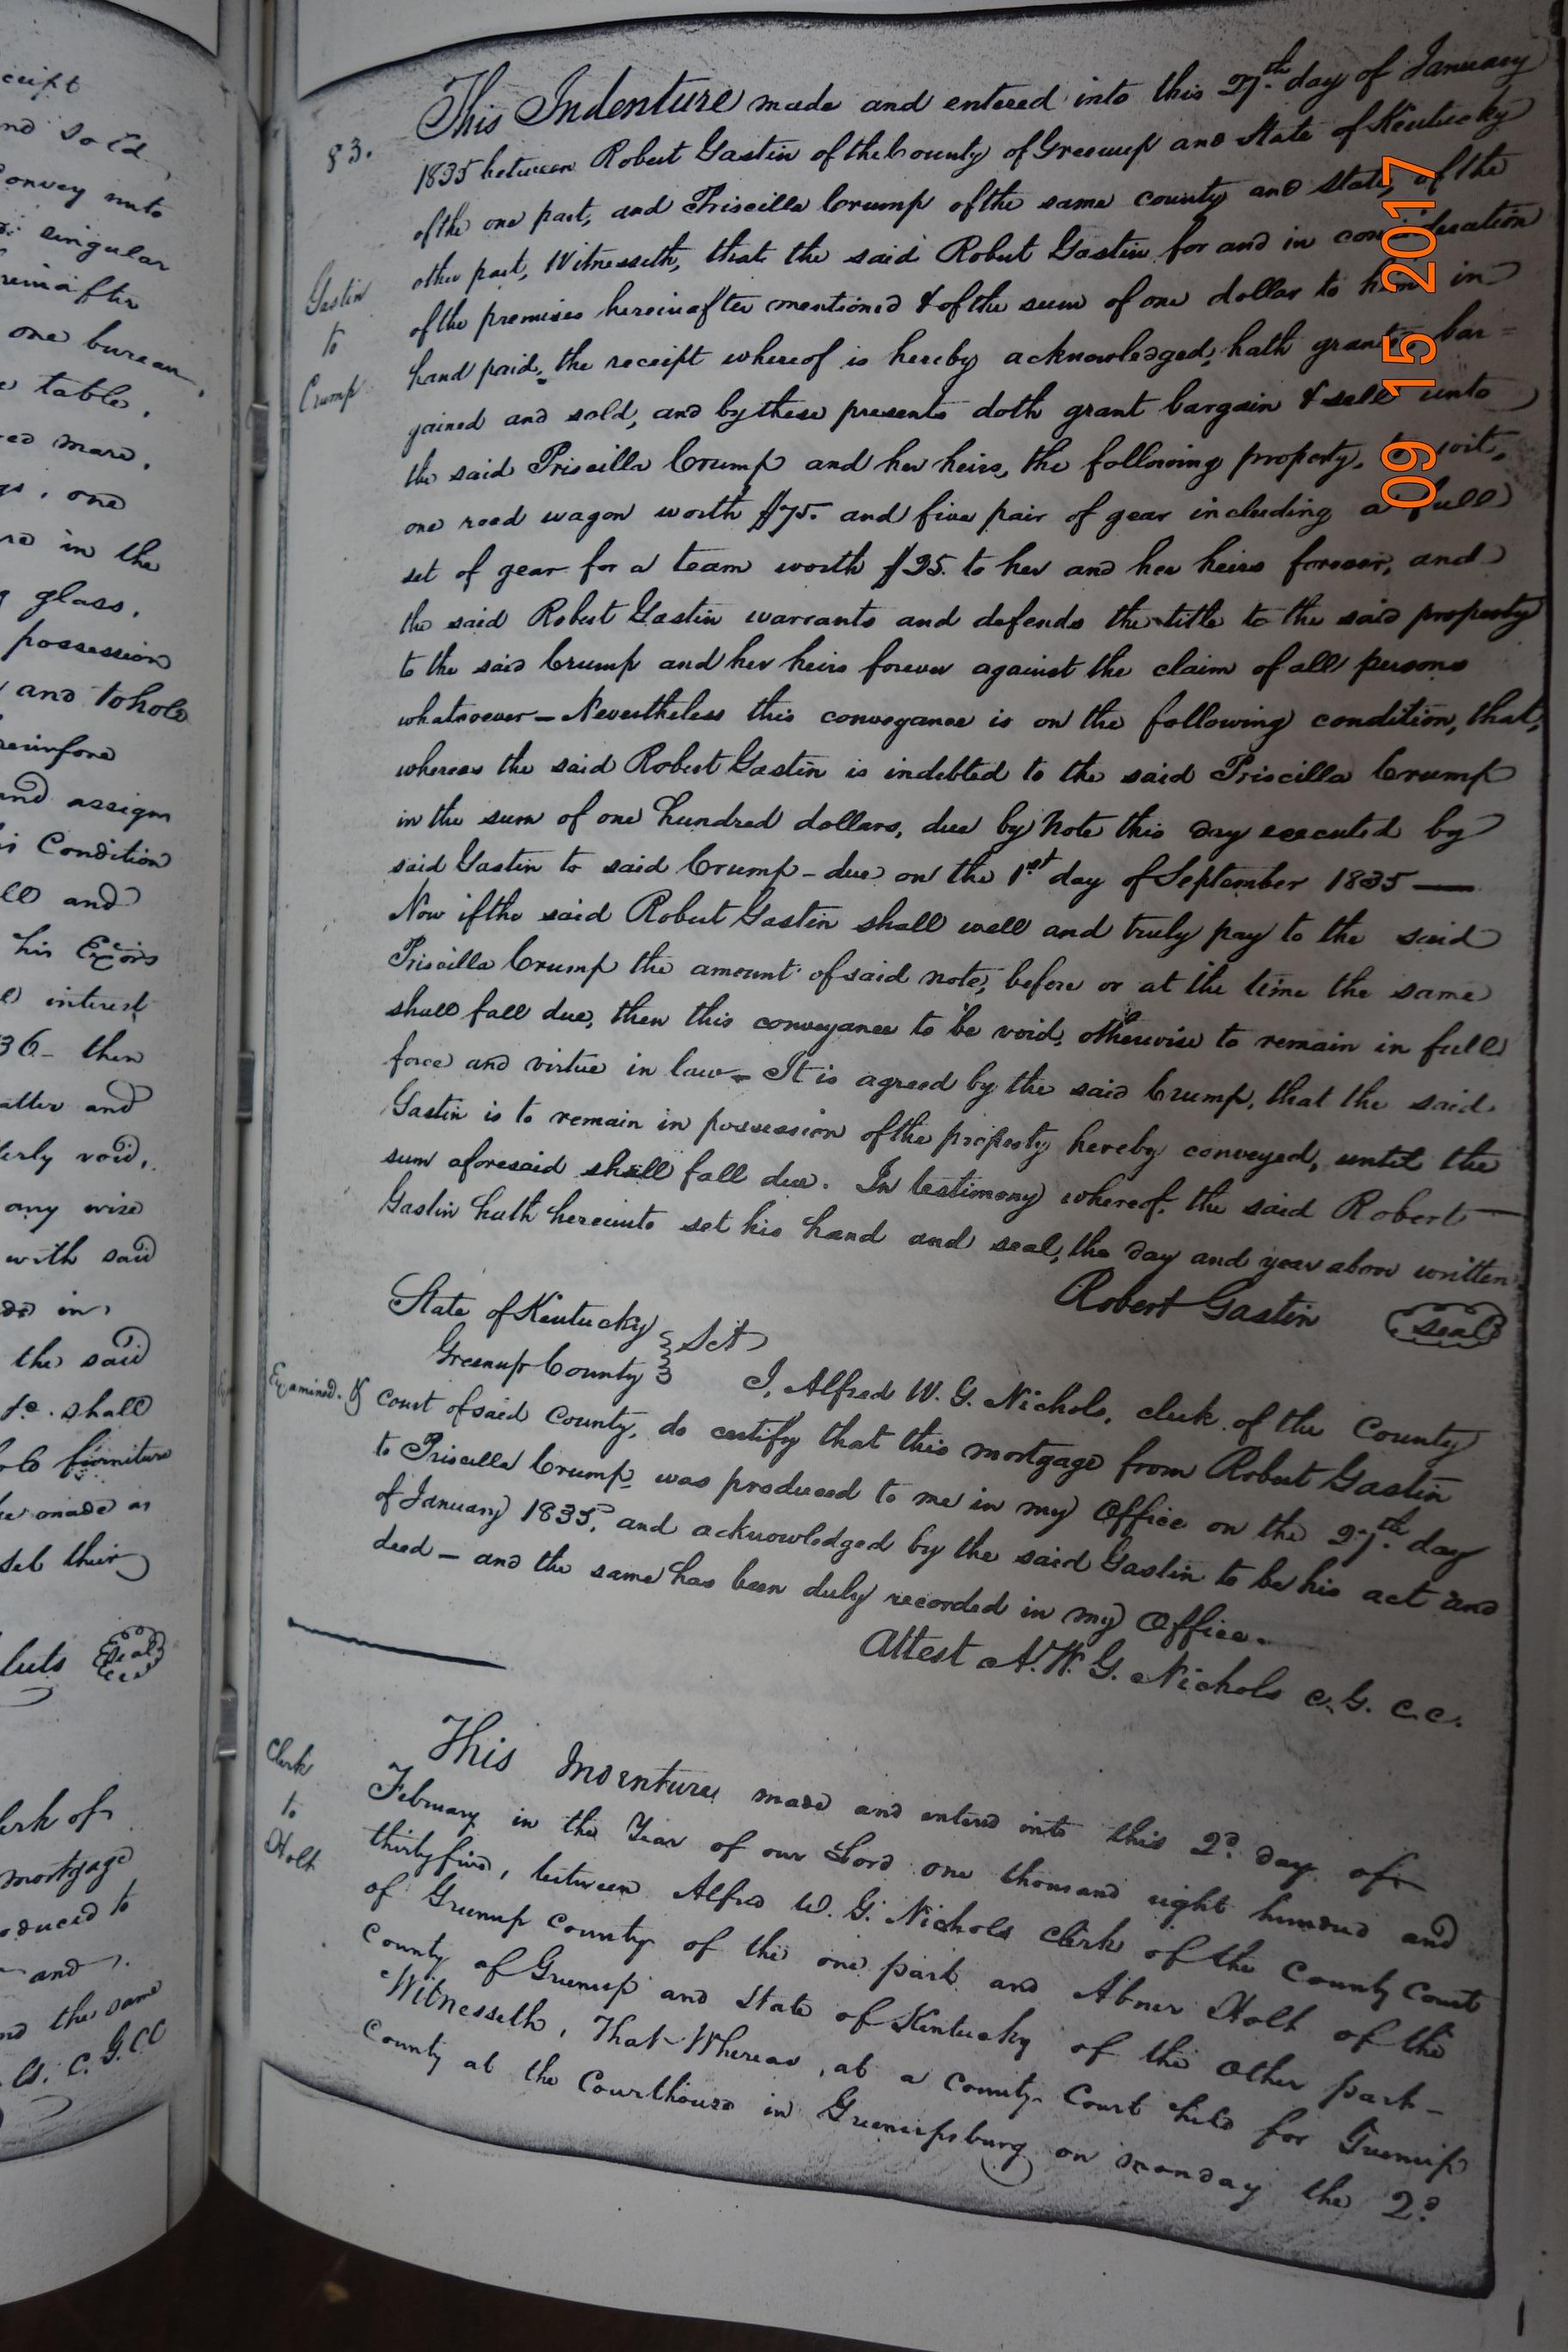 ceipt
nd sold
onvey unto
singular
reinafter
one bureau,
table,
red mare,
one
in the
glass,
possession
and to hold
and assign
Condition
ll and
his Exõrs
interest
36 - then
atter and
erly void,
any wise
with said
in
the said
shall
old furniture
be made as
set their
Seal
erk of
mortgage
oduced to
and
nd the same
C. G. CC
83.
Gastin
to
Crump
This Indenture made and entered into this 27th. day of January
1835 between Robert Gastin of the County of Greenup and State of Kentucky
of the one part, and Priscilla Crump of the same county and state, of the
other part, Witnesseth, that the said Robert Gastin for and in consideration
of the premises hereinafter mentioned & of the sum of one dollar to him in
hand paid, the receipt whereof is hereby acknowledged, hath granted bar=
gained and sold, and by these presents doth grant bargain & sell unto
the said Priscilla Crump and her heirs, the following property, to wit,
one road wagon worth $75. and five pair of gear including a full
set of gear for a team worth $25. to her and her heirs forever, and
the said Robert Gastin warrants and defends the title to the said property
to the said Crump and her heirs forever against the claim of all persons
whatsoever — Nevertheless this conveyance is on the following condition, that,
whereas the said Robert Gastin is indebted to the said Priscilla Crump
in the sum of one hundred dollars, due by note this day executed by
said Gastin to said Crump - due on the 1st. day of September 1835 —
Now if the said Robert Gastin shall well and truly pay to the said
Priscilla Crump the amount of said note, before or at the time the same
shall fall due, then this conveyance to be void, otherwise to remain in full
force and virtue in law - It is agreed by the said Crump, that the said
Gastin is to remain in possession of the property hereby conveyed, until the
sum aforesaid shall fall due. In testimony whereof, the said Robert
Gastin hath hereunto set his hand and seal, the day and year above written
Robert Gastin Seal
State of Kentucky
Greenup County } Sct
Examined. I, Alfred W. G. Nichols, clerk of the County
Court of said County, do certify that this mortgage from Robert Gastin
to Priscilla Crump, was produced to me in my Office on the 27th. day
of January 1835, and acknowledged by the said Gastin to be his act and
deed — and the same has been duly recorded in my Office.
Attest A. W. G. Nichols c. G. c.c.
Clerk
to
Holt
This Indenture made and entered into this 2d. day of
February in the Year of our Lord one thousand eight hundred and
thirty five, between Alfred W. G. Nichols clerk of the County Court
of Greenup County of the one part and Abner Holt of the
County of Greenup and State of Kentucky of the other part —
Witnesseth, That Whereas, at a County Court held for Greenup
County at the Courthouse in Greenupsburg on monday the 2d.
09 15 2017